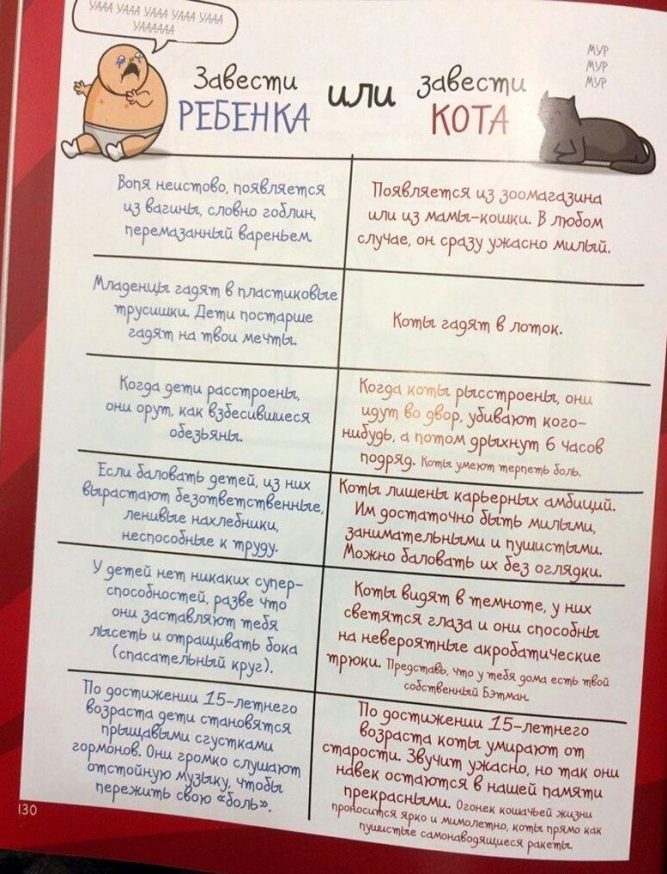 УААА УААА УААА УААА УААА
УААААAA
МУР
МУР
МУР
Завести
РЕБЕНКА
или
завести
КОТА
Вопя неистово, появляется
из вагины, словно гоблин,
перемазанный вареньем.
Появляется из зоомагазина
или из мамы-кошки. В любом
случае, он сразу ужасно милый.
Младенцы гадят в пластиковые
трусишки. Дети постарше
гадят на твои мечты.
Коты гадят в лоток.
Когда дети расстроены,
они орут, как взбесившиеся
обезьяны.
Когда коты рысстроены, они
идут во двор, убивают кого-
нибудь, а потом дрыхнут 6 часов
подряд. Коты умеют терпеть боль.
Если баловать детей, из них
вырастают безответственные,
ленивые нахлебники,
неспособные к труду.
Коты лишены карьерных амбиций.
Им достаточно быть милыми,
занимательными и пушистыми.
Можно баловать их без оглядки.
У детей нет никаких супер-
способностей, разве что
они заставляют тебя
лысеть и отращивать бока
(спасательный круг).
Коты видят в темноте, у них
светятся глаза и они способны
на невероятные акробатические
трюки. Представь, что у тебя дома есть твой
собственный Бэтман.
По достижении 15-летнего
возраста дети становятся
прыщавыми сгустками
гормонов. Они громко слушают
отстойную музыку, чтобы
пережить свою «боль».
По достижении 15-летнего
возраста коты умирают от
старости. Звучит ужасно, но так они
навек остаются в нашей памяти
прекрасными. Огонек кошачьей жизни
проносится ярко и мимолетно, коты прямо как
пушистые самонаводящиеся ракеты.
130